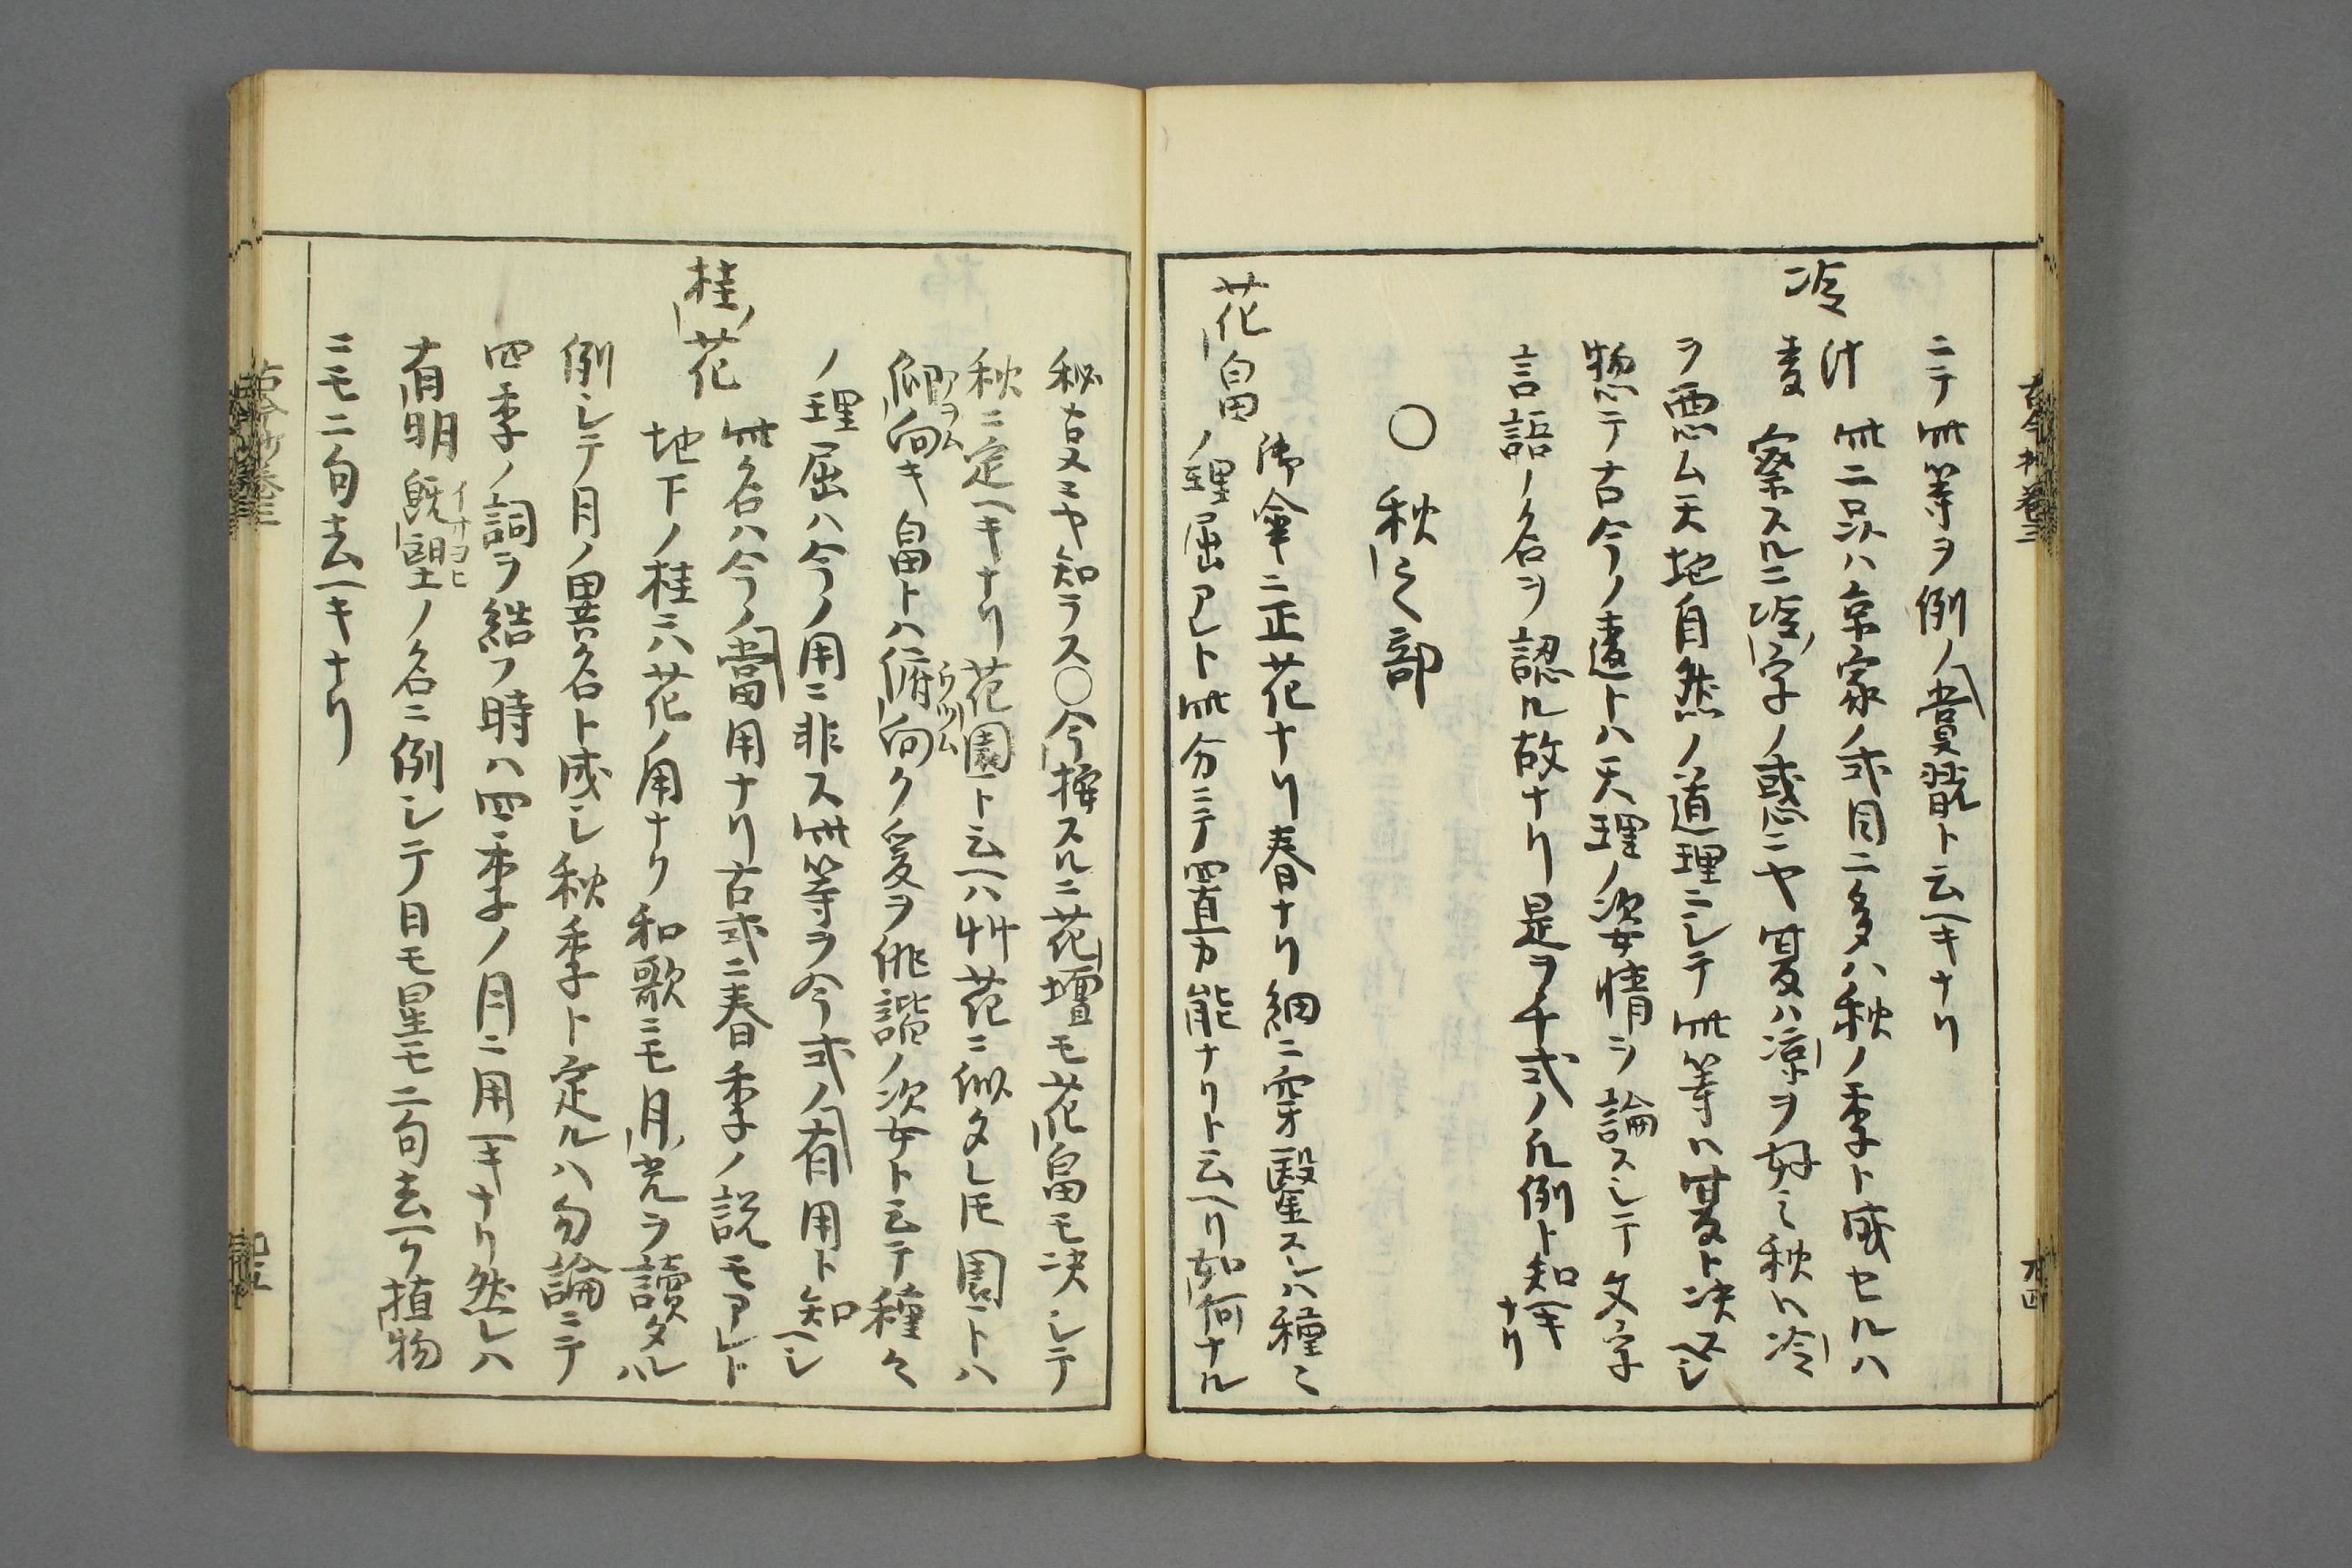 ニテ此等ヲ例ノ賞翫ト云ヘキナリ
冷
汁
麦
此二品ハ京家ノ式目ニ多ハ秋ノ季ト成セルハ
察スルニ冷字ノ惑ニヤ夏ハ涼ヲ好ミ秋ハ冷
ヲ悪ム天地自然ノ道理ニシテ此等ハ夏ト決スヘシ
惣テ古今ノ違トハ天理ノ次女情ヲ論スシテ文字
言語ノ名ヲ認ル故ナリ是ヲ千式ノ凡例ト知ヘキナリ
○秋之部
花畠
御傘ニ正花ナリ春ナリ細ニ穿鑿スレハ種ミ
ノ理屈アレト此分ニテ置カ能ナリト云ヘリ如何ナル
秘古文ニヤ知ラス○今按スルニ花壇モ花畠モ決シテ
秋ニ定ヘキナリ花園ト云ハ艸花ニ似タレ𪜈園トハ
仰向キ畠トハ俯向ク爰ヲ俳諧ノ次女ト云テ種々
アヲム
ウツム
ノ理屈ハ今ノ用ニ非ス此等ヲ今式ノ有用ト知ヘシ
桂花
此名ハ今ノ當用ナリ古式ニ春季ノ説モアレド
地下ノ桂ニハ花ノ用ナク和歌ニモ月光ヲ讀タルハ
例シテ月ノ異名ト成シ秋季ト定ルハ勿論ニテ
四季ノ詞ヲ結フ時ハ四季ノ月ニ用ヘキナリ然レハ
有明既望ノ名ニ例シテ日モ星モ二句去ヘク植物
イサヨヒ
ニモ二句去ヘキナリ
古今抄巻三